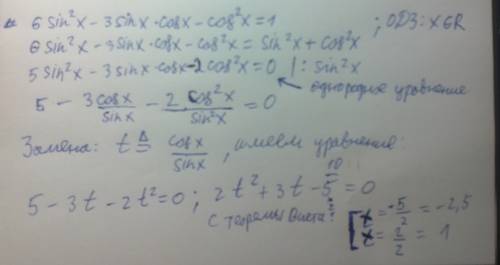 6 sin²x - 3 sinx · cosx - cos²x = 1 ; ОДЗ: x∈R
6 sin²x - 3 sinx · cosx - cos²x = sin²x + cos²x
5 sin²x - 3 sinx · cosx - 2 cos²x = 0 | : sin²x
однородное уравнение
5 - 3 cosx/sinx - 2 · cos²x/sin²x = 0
Замена: t ≜ cosx/sinx, имеем уравнение:
10
5 - 3t - 2t² = 0 ; 2t² + 3t - 5 = 0
с теоремы Виета: [ t = -5/2 = -2,5
t = 2/2 = 1